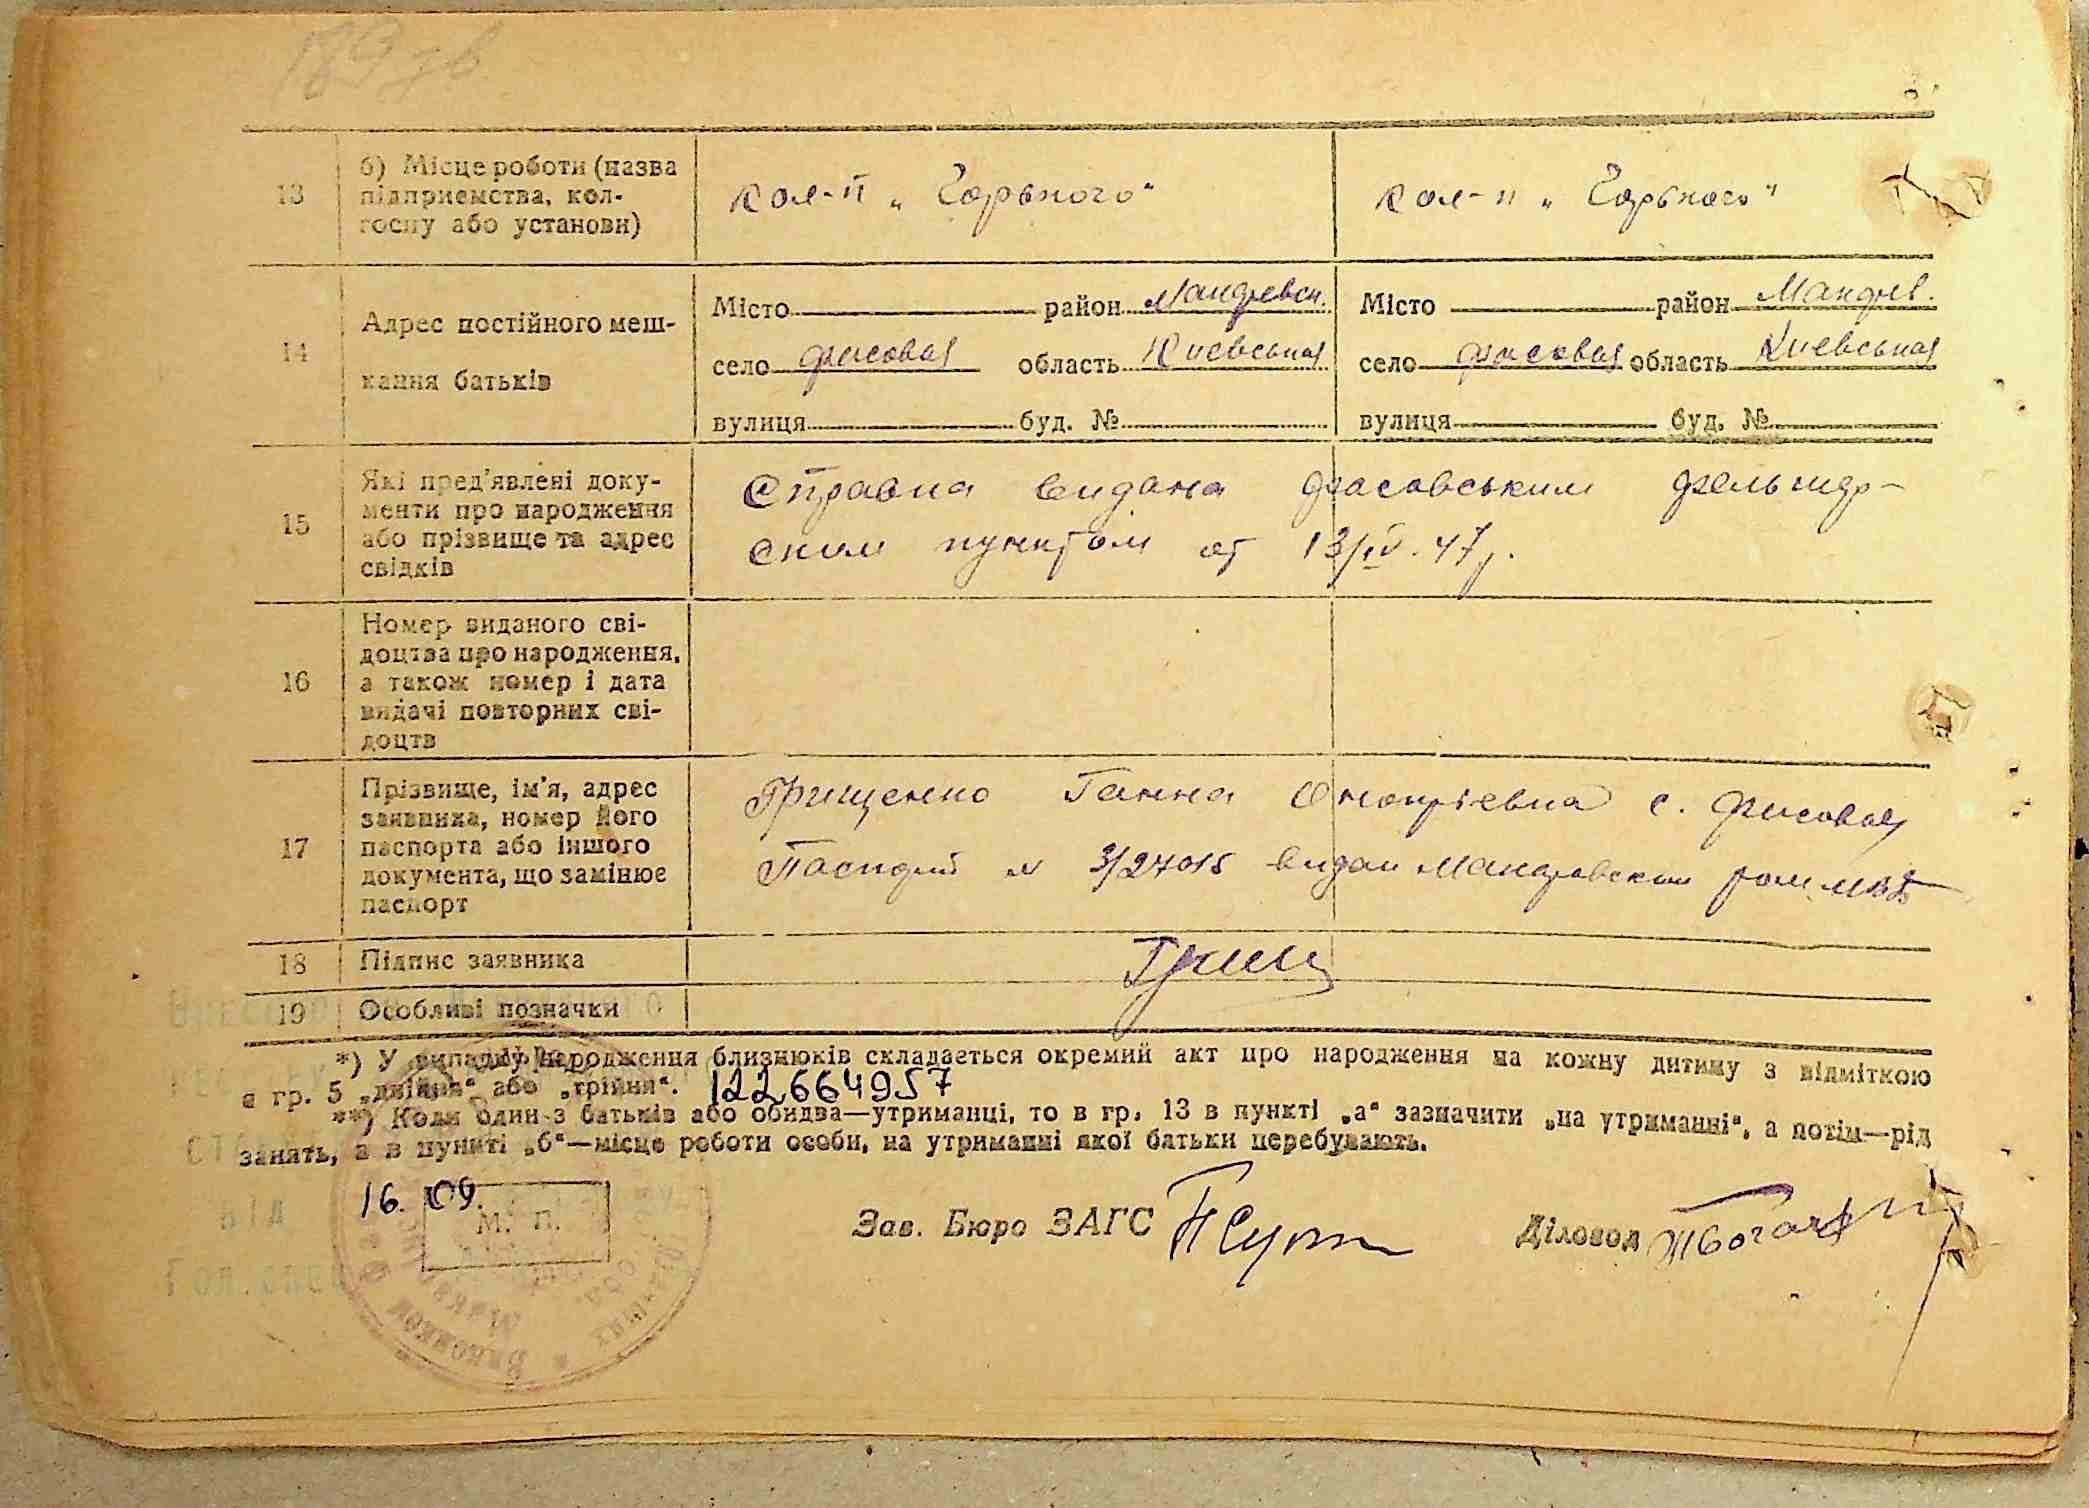 189 зв
13
б) Місце роботи (назва
підприємства, кол-
госпу або установи)
кол-п „Горького“
кол-п „Горького“
14
Адрес постійного меш-
кання батьків
Місто район
село фасовая область Киевськая
вулиця буд. №
Місто район
село фасовая область Киевськая
вулиця буд. №
15
Які пред'явлені доку-
менти про народження
або прізвище та адрес
свідків
Справка видана фасовським фельшер-
ским пунктом от 13/IV. 47 р.
16
Номер виданого сві-
доцтва про народження,
а також номер і дата
видачі повторних сві-
доцтв
17
Прізвище, ім'я, адрес
заявника, номер його
паспорта або іншого
документа, що замінює
паспорт
Грищенко Ганна Онопріевна с. фасовая
Паспорт № видан
18
Підпис заявника
Грищ
19
Особливі позначки
*) У випадку народження близнюків складається окремий акт про народження на кожну дитину з відміткою
в гр. 5 „двійня“ або „трійня“. 122664957
**) Коли один з батьків або обидва—утриманці, то в гр. 13 в пункті „а“ зазначити „на утриманні“, а потім—рід
занять, а в пункті „б“—місце роботи особи, на утриманні якої батьки перебувають.
16. 09.
М. П.
Зав. Бюро ЗАГС
Діловод